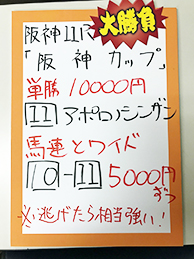 大勝負
阪神11R
「阪神カップ」
単勝10000円
11 アポロノシンザン
馬連とワイド
10-11 5000円
ずつ
※逃げたら相当強い!